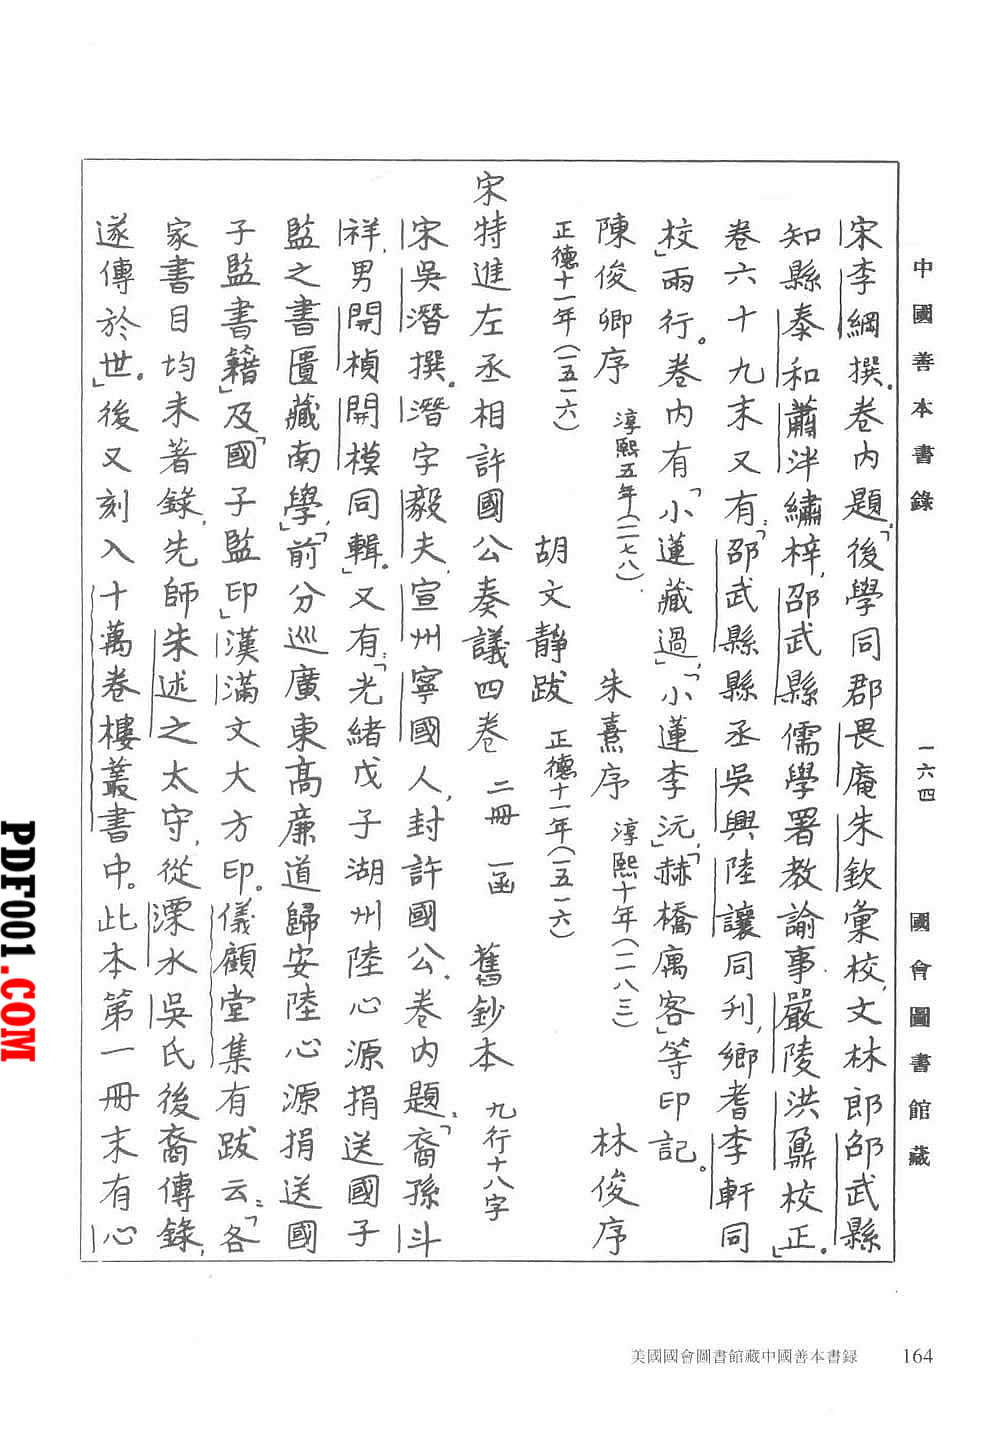 中國善本書錄 一六四 國會圖書館藏
宋李綱撰。卷內題:「後學同郡畏庵朱欽彙校,文林郎邵武縣
知縣泰和蕭泮繡梓,邵武縣儒學署教諭事嚴陵洪鼐校正。」
卷六十九末又有:「邵武縣縣丞吳興陸讓同刋,鄉耆李軒同
校」兩行。卷內有「小蓮藏過」,「小蓮李沅」,「赫橋寓客」等印記。
陳俊卿序 淳熙五年(一一七八) 朱熹序 淳熙十年(一一八三) 林俊序
正德十一年(一五一六) 胡文靜跋 正德十一年(一五一六)
宋特進左丞相許國公奏議四卷 二冊 一函 舊鈔本 九行十八字
宋吳潛撰。潛字毅夫,宣州寧國人,封許國公。卷內題:「裔孫斗
祥,男開楨開模同輯。」又有:「光緒戊子湖州陸心源捐送國子
監之書匱藏南學」,「前分巡廣東高廉道歸安陸心源捐送國
子監書籍」及「國子監印」漢滿文大方印。儀顧堂集有跋云:「各
家書目均未著錄,先師朱述之太守,從溧水吳氏後裔傳錄,
遂傳於世。」後又刻入十萬卷樓叢書中。此本第一冊末有心
美國國會圖書館藏中國善本書録 164
PDF001.COM